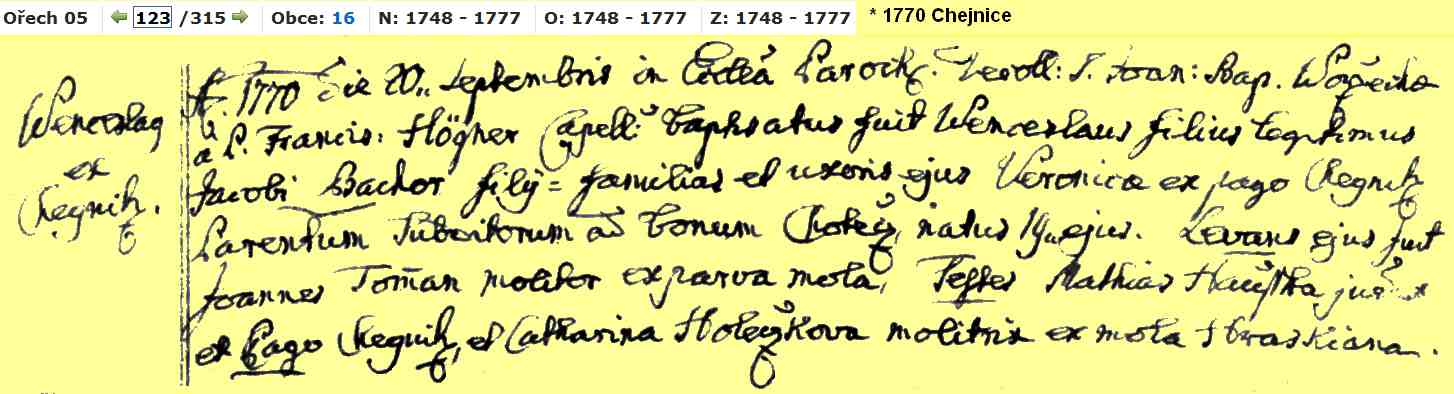 Ořech 05 123 /315 Obce: 16 N: 1748 - 1777 O: 1748 - 1777 Z: 1748 - 1777 * 1770 Chejnice
Wenceslaq
ex
Chegnicz.
A. 1770 die 20,, Septembris in Eccleã Paroch: S. Joan: Bap.
à P. Francis: Högner Capell: baptisatus fuit Wenceslaus filius legitimus
Jacobi Bachor filij = familias et uxoris ejus Veronicæ ex pago Chegnicz
Parentum Subditorum ad bonum Chotecz, natus 19,, ejus. Levans ejus fuit
Joannes Toman molitor ex parva mola, Testes Mathias
ex Pago Chegnicz, et Catharina Holeczkova molitrix ex mola Hraskiana.